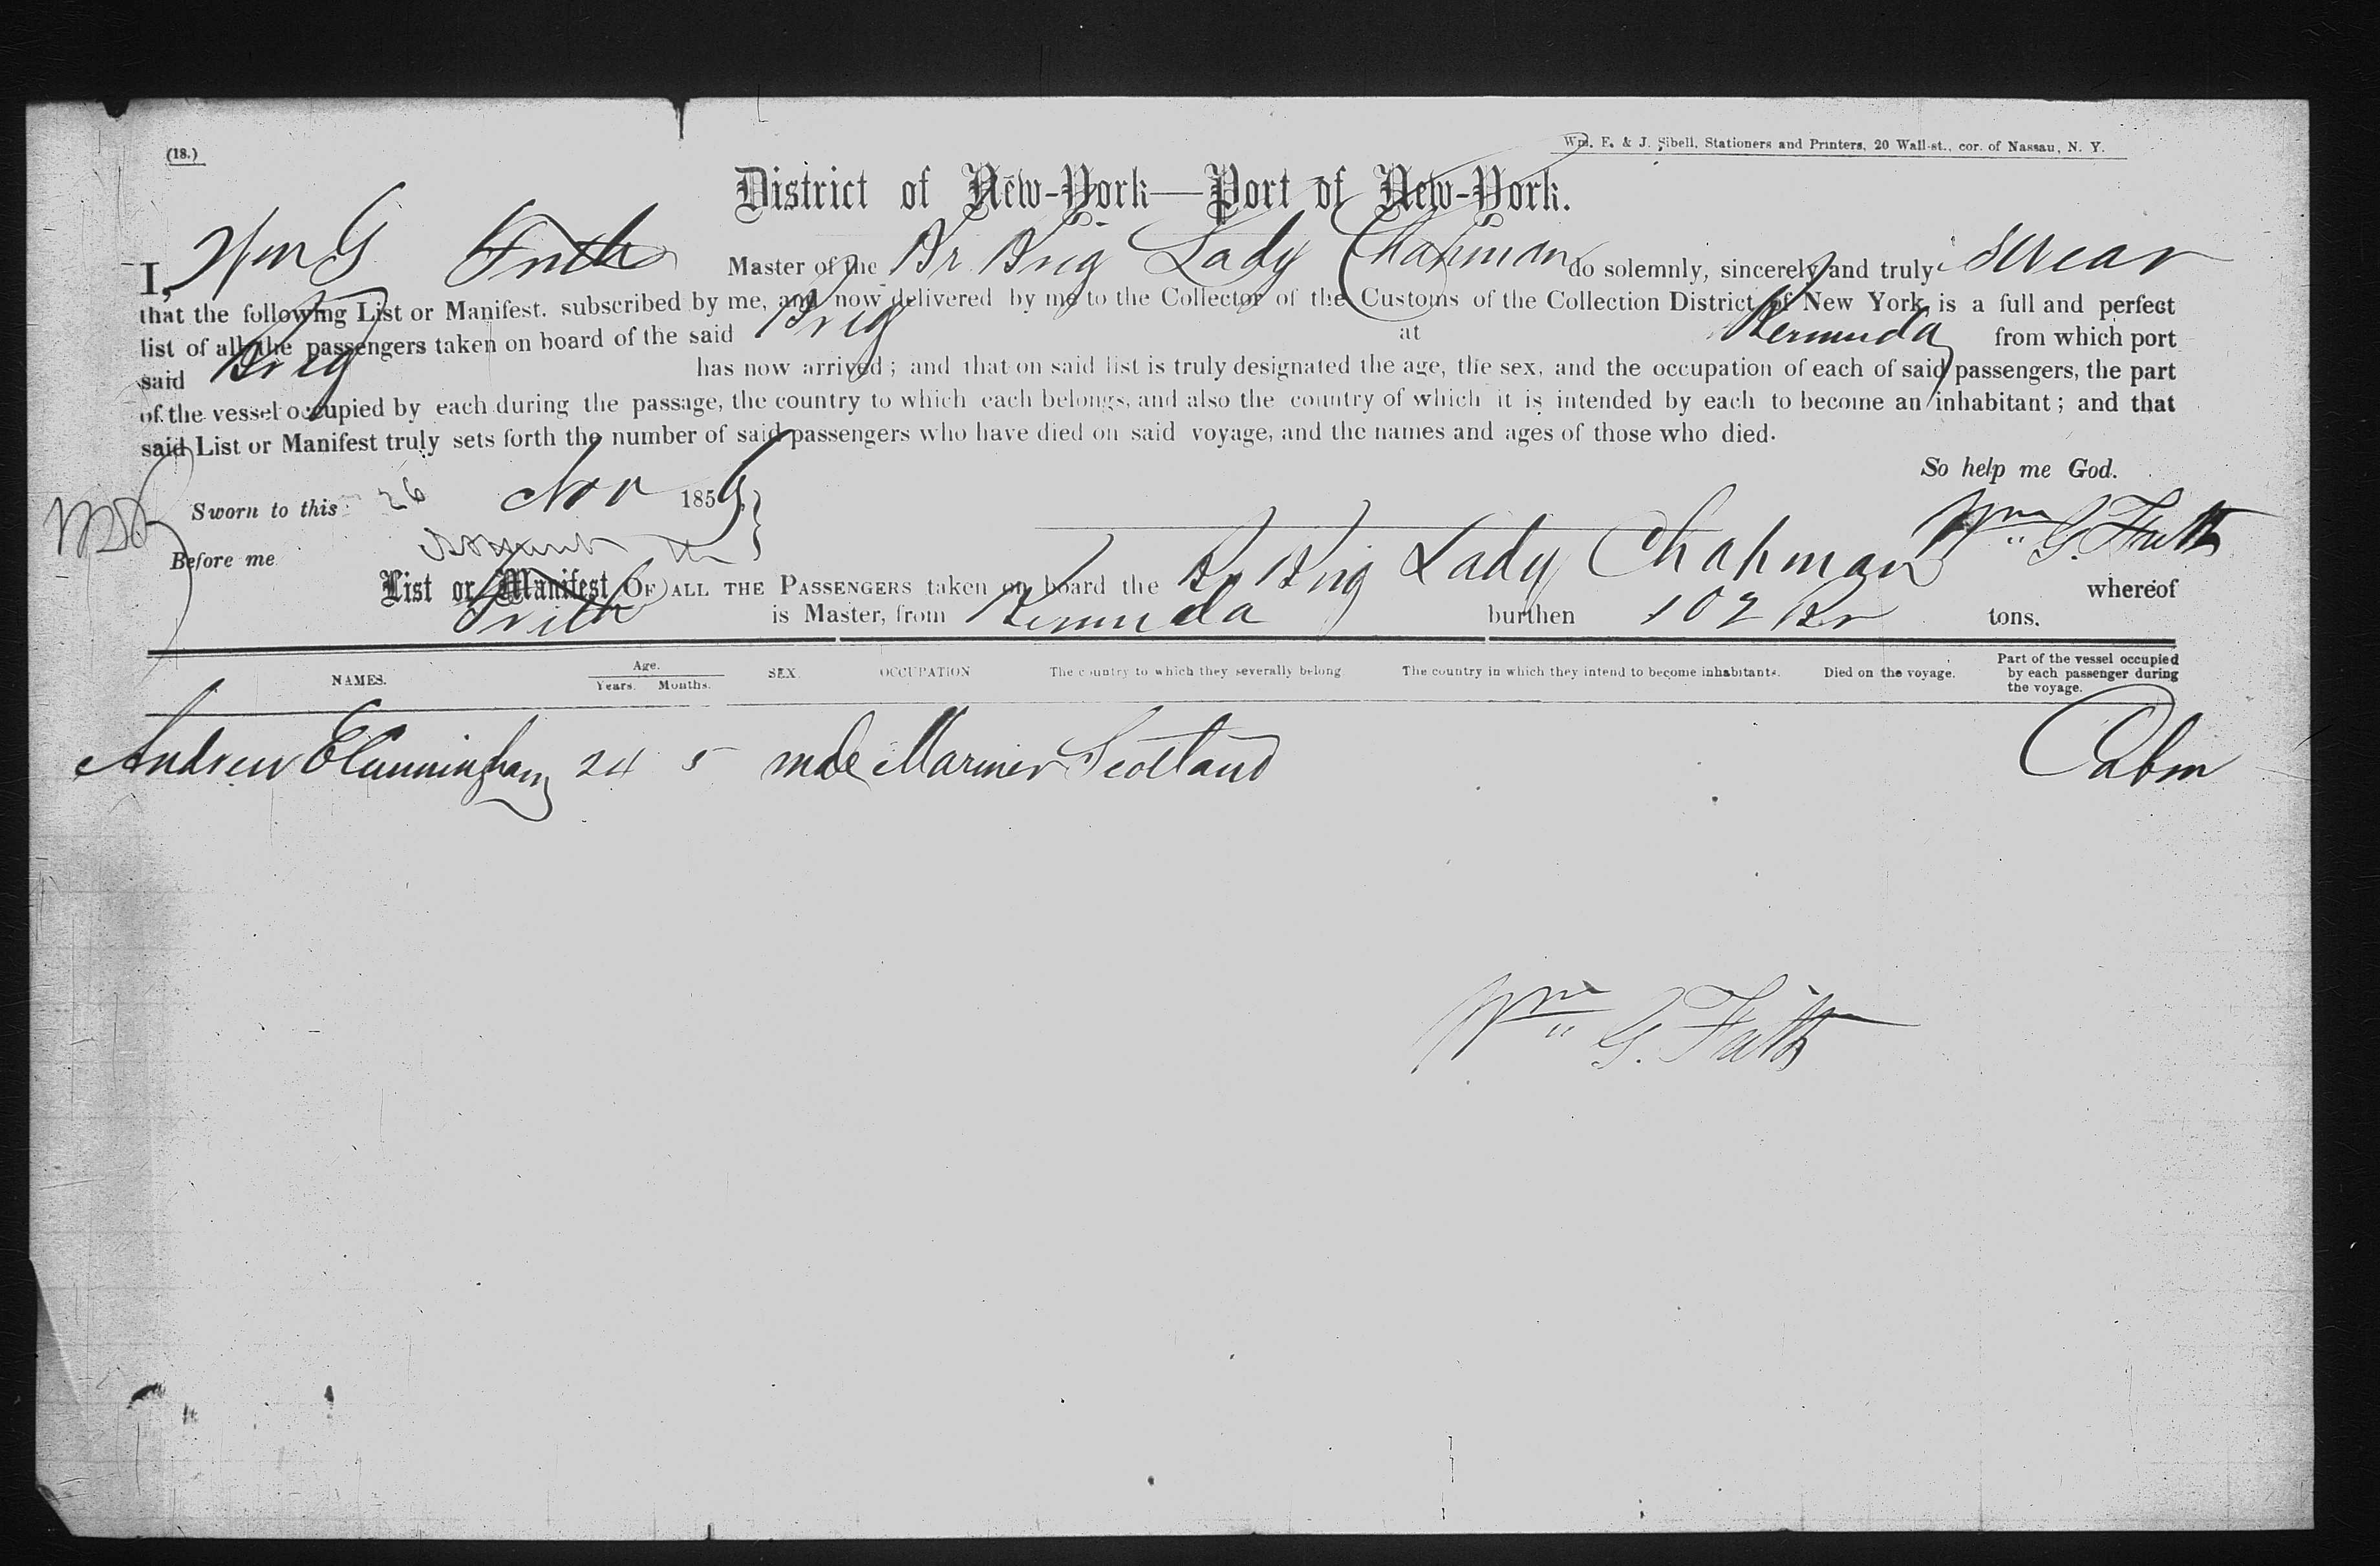 (18.)
Wm. E. & J. Sibell, Stationers and Printers, 20 Wall-st., cor. of Nassau, N. Y.
District of New-York—Port of New-York.
I, Wm G Frith Master of the Br Brig Lady Chapman do solemnly, sincerely and truly swear
that the following List or Manifest. subscribed by me, and now delivered by me to the Collector of the Customs of the Collection District of New York, is a full and perfect
list of all the passengers taken on board of the said Brig at Bermuda from which port
said Brig has now arrived; and that on said list is truly designated the age, the sex, and the occupation of each of said passengers, the part
of the vessel occupied by each during the passage, the country to which each belongs, and also the country of which it is intended by each to become an inhabitant; and that
said List or Manifest truly sets forth the number of said passengers who have died on said voyage, and the names and ages of those who died.
So help me God.
Sworn to this 26 Nov 1859
Wm G. Frith
Before me
List or Manifest OF ALL THE PASSENGERS taken on board the Br Brig Lady Chapman whereof
Frith is Master, from Bermuda burthen 102 Br tons.
NAMES. Age. Years. Months. SEX. OCCUPATION The country to which they severally belong The country in which they intend to become inhabitants. Died on the voyage. Part of the vessel occupied by each passenger during the voyage.
Andrew E Cunningham 24 5 male Mariner Scotland Cabin
Wm G. Frith